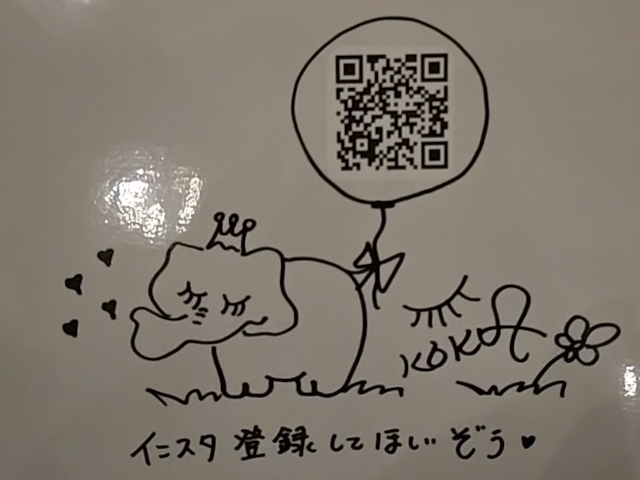 KOKO
インスタ登録してほしいぞう♥